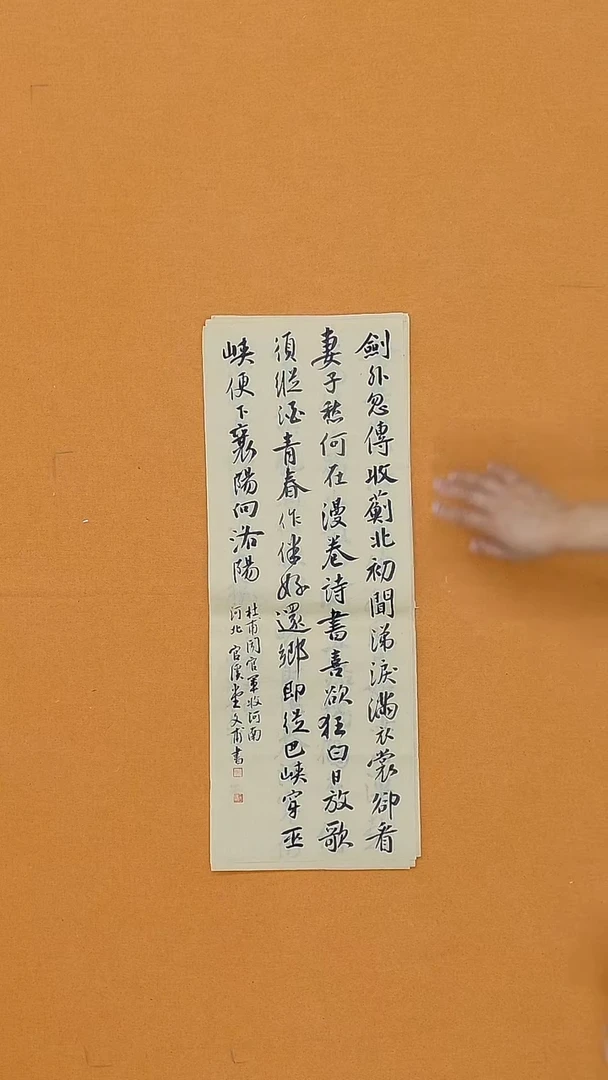 劍外忽傳收薊北初聞涕淚滿衣裳卻看
妻子愁何在漫卷詩書喜欲狂白日放歌
須縱酒青春作伴好還鄉即從巴峽穿巫
峽便下襄陽向洛陽
杜甫聞官軍收河南
河北 溪堂文甫書